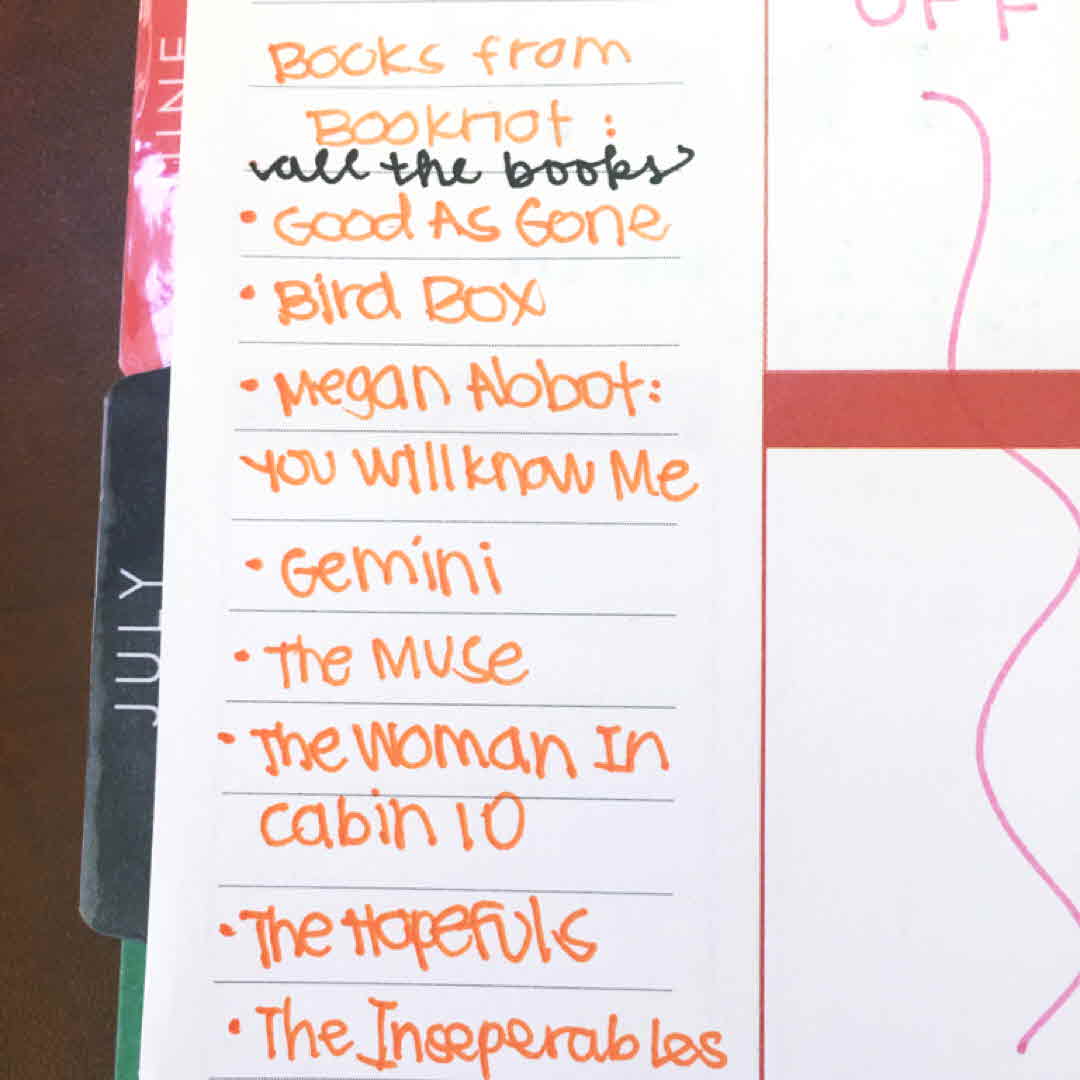 OFF
JUNE
JULY
Books from
Bookriot :
all the books
• Good As Gone
• Bird Box
• Megan Abbot:
You Will know Me
• Gemini
• The Muse
• The Woman In
cabin 10
• The Hopefuls
• The Inseperables